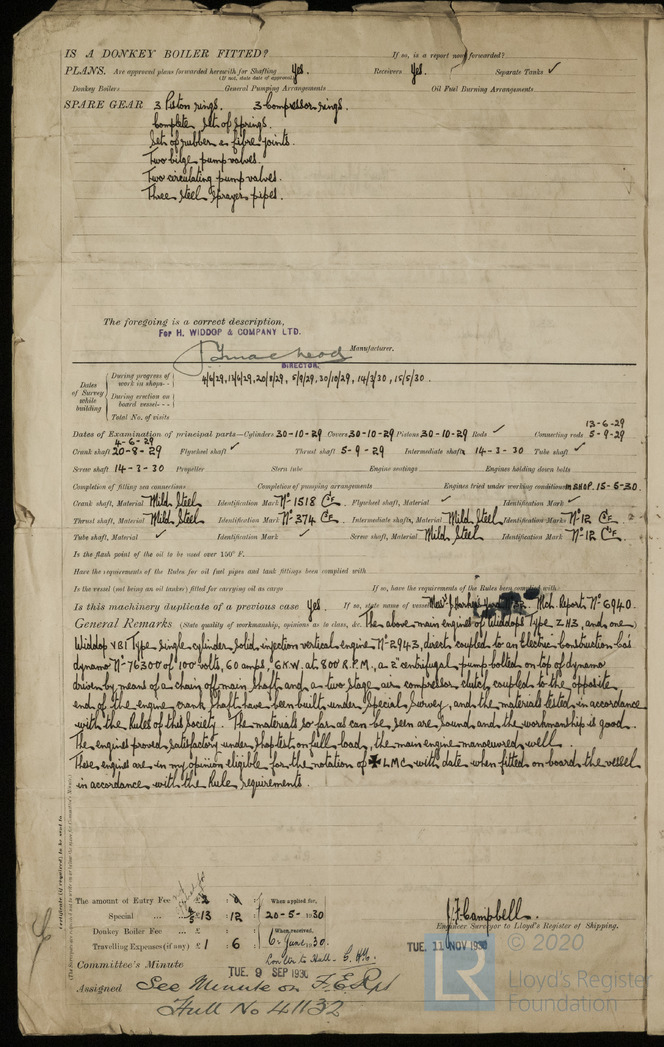 IS A DONKEY BOILER FITTED? If so, is a report now forwarded?
PLANS. Are approved plans forwarded herewith for Shafting Yes. Receivers Yes. Separate Tanks ✓
(If not, state date of approval)
Donkey Boilers General Pumping Arrangements Oil Fuel Burning Arrangements
SPARE GEAR 3 Piston rings. 3 Compressor rings.
Complete set of springs.
Set of rubber & fibre joints.
Two bilge pump valves.
Two circulating pump valves.
Three steel sprayer pipes.
The foregoing is a correct description,
For H. WIDDOP & COMPANY LTD.
Manufacturer.
DIRECTOR.
Dates of Survey while building
During progress of work in shops - - 4/6/29, 13/6/29, 20/8/29, 5/9/29, 30/10/29, 14/3/30, 15/5/30.
During erection on board vessel - - -
Total No. of visits
13-6-29
Dates of Examination of principal parts—Cylinders 30-10-29 Covers 30-10-29 Pistons 30-10-29 Rods ✓ Connecting rods 5-9-29
4-6-29
Crank shaft 20-8-29 Flywheel shaft ✓ Thrust shaft 5-9-29 Intermediate shafts 14-3-30 Tube shaft ✓
Screw shaft 14-3-30 Propeller Stern tube Engine seatings Engines holding down bolts
Completion of fitting sea connections Completion of pumping arrangements Engines tried under working conditions IN SHOP. 15-5-30.
Crank shaft, Material Mild Steel Identification Mark No 1518 Flywheel shaft, Material ✓ Identification Mark ✓
Thrust shaft, Material Mild Steel Identification Mark No 374 Intermediate shafts, Material Mild Steel Identification Marks No 12
Tube shaft, Material ✓ Identification Mark ✓ Screw shaft, Material Mild Steel Identification Mark No 12
Is the flash point of the oil to be used over 150° F.
Have the requirements of the Rules for oil fuel pipes and tank fittings been complied with
Is the vessel (not being an oil tanker) fitted for carrying oil as cargo If so, have the requirements of the Rules been complied with
Is this machinery duplicate of a previous case Yes. If so, state name of vessel Mch. Report No 6940.
General Remarks (State quality of workmanship, opinions as to class, &c. The above main engine of Widdops Type, 2H3, and one
Widdop VB1 Type single cylinder solid injection vertical engine No 2943, direct coupled to an Electric Construction Co's
dynamo No 76300 of 100 volts, 60 amps, 6 K.W. at 800 R.P.M., a 2" centrifugal pump bolted on top of dynamo
driven by means of a chain off main shaft and a two stage air compressor clutch coupled to the opposite
end of the engine crank shaft have been built under Special Survey, and the materials tested in accordance
with the Rules of this Society. The materials so far as can be seen are sound and the workmanship is good.
The engines proved satisfactory under shop test on full load, the main engine manoeuvred well.
These engines are in my opinion eligible for the notation of ✠ LMC with date when fitted on board the vessel
in accordance with the Rule requirements.
Certificate (if required) to be sent to
(The Surveyors are requested not to write on or below the space for Committee's Minute.)
The amount of Entry Fee £ 2 : 0 : When applied for,
Special ... £ 13 : 12 : 20-5-1930
Donkey Boiler Fee ... £ : : When received,
Travelling Expenses (if any) £ 1 : 6 : 6. June 1930.
J. F. Campbell.
Engineer Surveyor to Lloyd's Register of Shipping.
TUE. 11 NOV 1930
Committee's Minute TUE. 9 SEP 1930
Assigned See Minute on F.E. Rpt
Hull No 41132
© 2020
LR
Lloyd's Register
Foundation